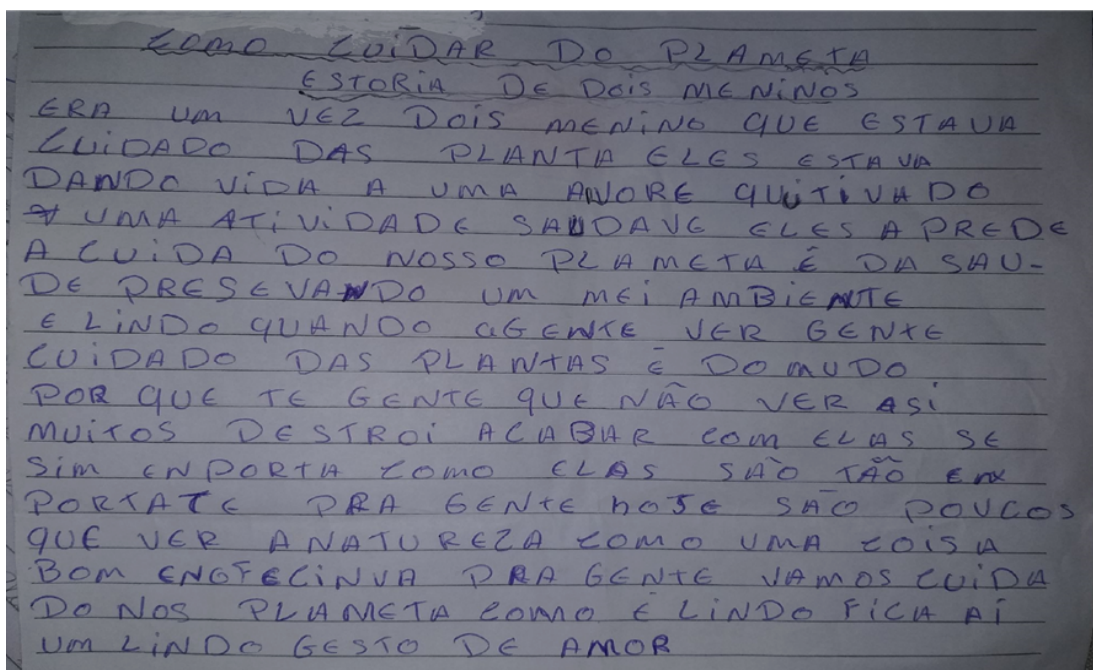 COMO CUIDAR DO PLAMETA
ESTORIA DE DOIS MENINOS
ERA UM VEZ DOIS MENINO QUE ESTAVA
CUIDADO DAS PLANTA ELES ESTAVA
DANDO VIDA A UMA AVORE QUITIVADO
UMA ATIVIDADE SAUDAVE ELES APREDE
A CUIDA DO NOSSO PLAMETA É DA SAU-
DE PRESEVANDO UM MEI AMBIENTE
E LINDO QUANDO AGENTE VER GENTE
CUIDADO DAS PLANTAS E DO MUDO
POR QUE TE GENTE QUE NÃO VER ASI
MUITOS DESTROI ACABAR COM ELAS SE
SIM ENPORTA COMO ELAS SÃO TÃO EM
PORTATE PRA GENTE HOJE SÃO POUCOS
QUE VER A NATUREZA COMO UMA COISA
BOM PRA GENTE VAMOS CUIDA
DO NOS PLAMETA COMO É LINDO FICA AÍ
UM LINDO GESTO DE AMOR